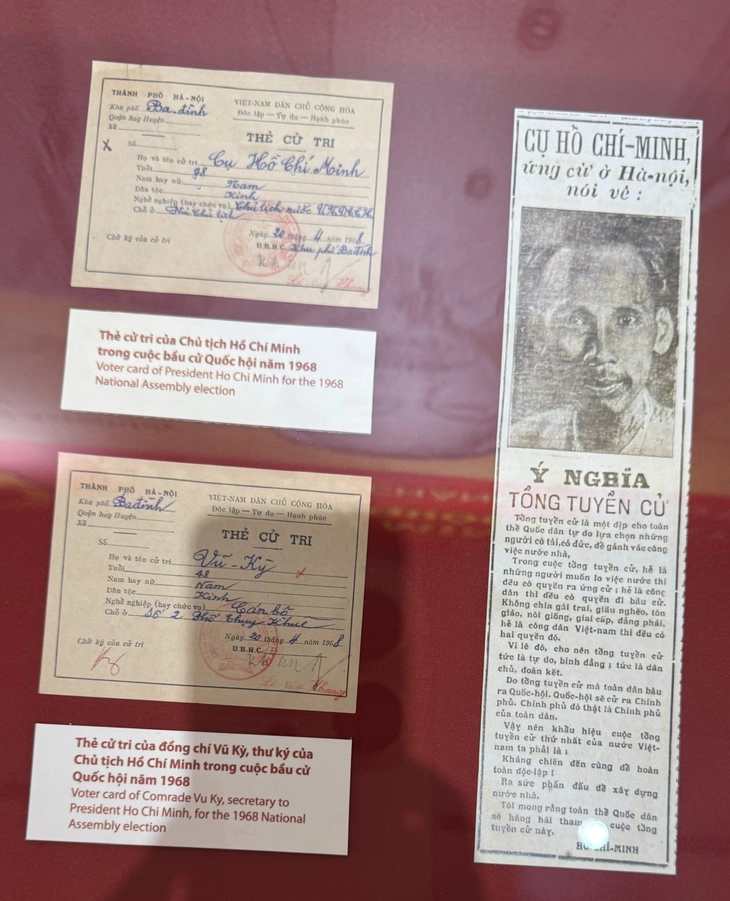 THÀNH PHỐ HÀ-NỘI
Khu phố Ba-đình
Quận hay Huyện
Xã
Số
VIỆT-NAM DÂN CHỦ CỘNG HÒA
Độc lập — Tự do — Hạnh phúc
THẺ CỬ TRI
Họ và tên cử tri Cụ Hồ Chí Minh
Tuổi 78
Nam hay nữ Nam
Dân tộc Kinh
Nghề nghiệp (hay chức vụ) Chủ tịch nước
Chỗ ở Phủ Chủ tịch
Ngày 20 tháng 4 năm 1968
U.B.H.C. Khu phố Ba đình
Chữ ký của cử tri
Thẻ cử tri của Chủ tịch Hồ Chí Minh
trong cuộc bầu cử Quốc hội năm 1968
Voter card of President Ho Chi Minh for the 1968
National Assembly election
THÀNH PHỐ HÀ-NỘI
Khu phố Ba đình
Quận hay Huyện
Xã
Số
VIỆT-NAM DÂN CHỦ CỘNG HÒA
Độc lập — Tự do — Hạnh phúc
THẺ CỬ TRI
Họ và tên cử tri Vũ-Kỳ
Tuổi 48
Nam hay nữ Nam
Dân tộc Kinh
Nghề nghiệp (hay chức vụ) Cán bộ
Chỗ ở Số 2 Phố Thuỵ Khuê
Ngày 20 tháng 4 năm 1968
U.B.H.C.
Chữ ký của cử tri
Thẻ cử tri của đồng chí Vũ Kỳ, thư ký của
Chủ tịch Hồ Chí Minh trong cuộc bầu cử
Quốc hội năm 1968
Voter card of Comrade Vu Ky, secretary to
President Ho Chi Minh, for the 1968 National
Assembly election
CỤ HỒ CHÍ-MINH,
ứng cử ở Hà-nội,
nói về :
Ý NGHĨA
TỔNG TUYỂN CỬ
Tổng tuyển cử là một dịp cho toàn
thể Quốc dân tự do lựa chọn những
người có tài, có đức, để gánh vác công
việc nước nhà,
Trong cuộc tổng tuyển cử, hễ là
những người muốn lo việc nước thì
đều có quyền ra ứng cử ; hễ là công
dân thì đều có quyền đi bầu cử.
Không chia gái trai, giầu nghèo, tôn
giáo, nòi giống, giai cấp, đảng phái,
hễ là công dân Việt-nam thì đều có
hai quyền đó.
Vì lẽ đó, cho nên tổng tuyển cử
tức là tự do, bình đẳng ; tức là dân
chủ, đoàn kết.
Do tổng tuyển cử mà toàn dân bầu
ra Quốc-hội. Quốc-hội sẽ cử ra Chính
phủ. Chính phủ đó thật là Chính phủ
của toàn dân.
Vậy nên khẩu hiệu cuộc tổng
tuyển cử thứ nhất của nước Việt-
nam ta phải là :
Kháng chiến đến cùng để hoàn
toàn độc-lập !
Ra sức phấn đấu để xây dựng
nước nhà.
Tôi mong rằng toàn thể Quốc dân
sẽ hăng hái tham cuộc tổng
tuyển cử này.
HỒ CHÍ-MINH